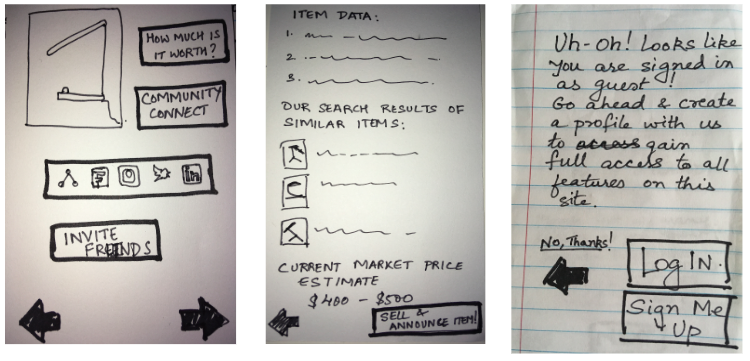 HOW MUCH IS
IT WORTH?
COMMUNITY
CONNECT
in
INVITE
FRIENDS
ITEM DATA:
1.
2.
3.
OUR SEARCH RESULTS OF
SIMILAR ITEMS:
CURRENT MARKET PRICE
ESTIMATE
$400 - $500
SELL &
ANNOUNCE ITEM!
Uh-oh! Looks like
you are signed in
as guest!
Go ahead & create
a profile with us
to access gain
full access to all
features on this
site.
No, Thanks!
Log IN.
Sign Me
Up